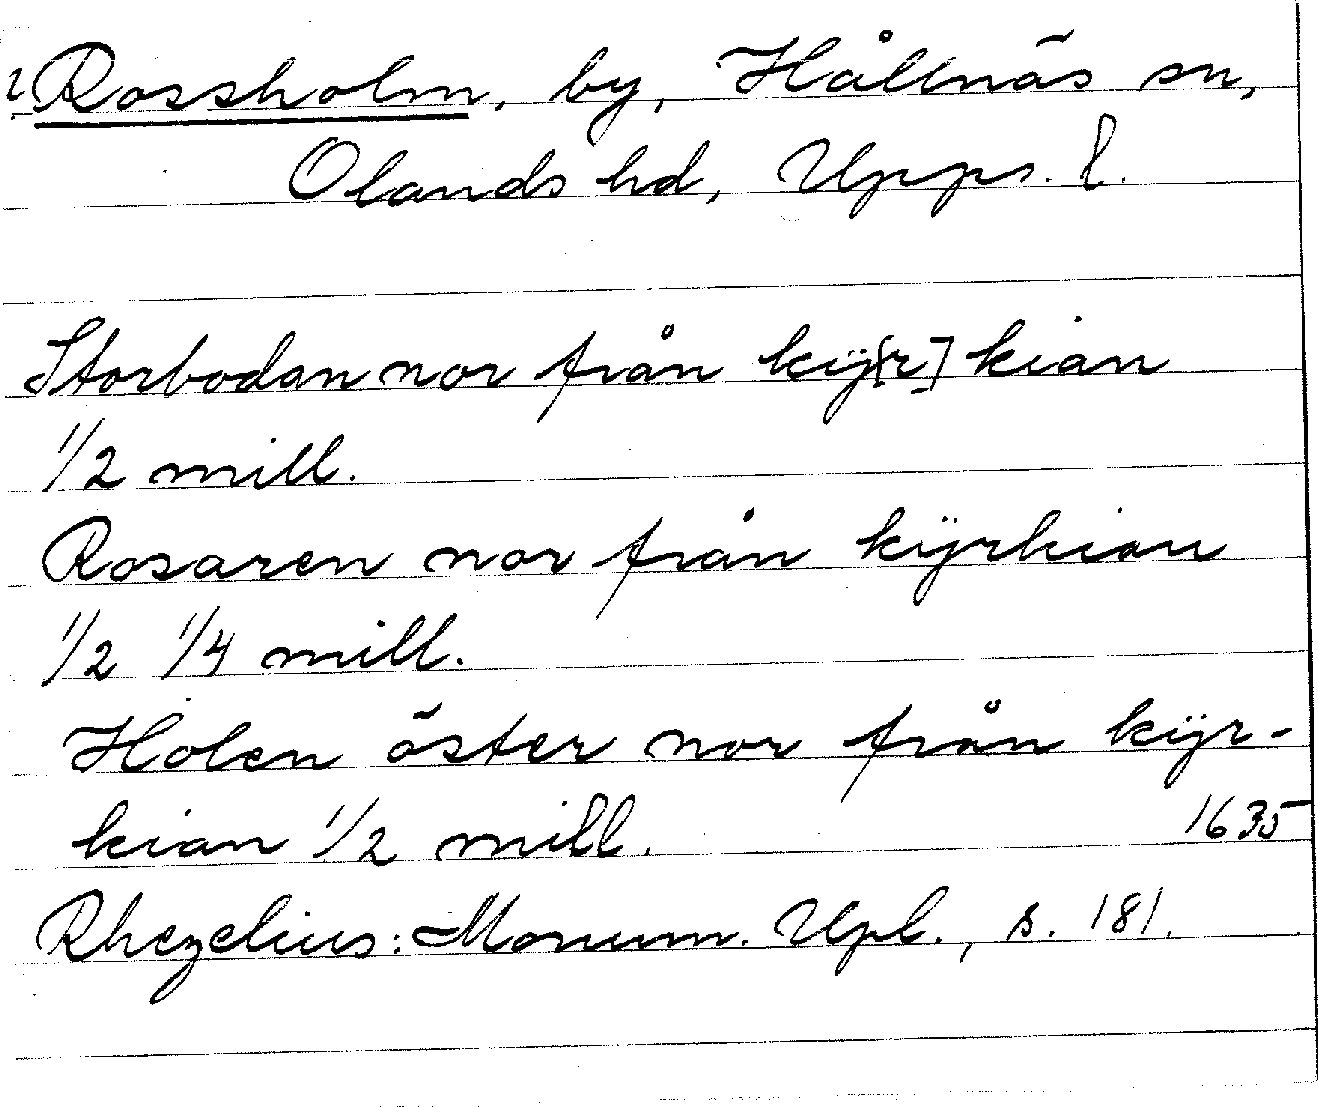 ? Rossholm, by, Hållnäs sn,
Olands hd, Upps. l.
Storbodan nor från kÿ[r]kian
1/2 mill.
Rosaren nor från kÿrkian
1/2 1/4 mill.
Holen öster nor från kÿr-
kian 1/2 mill. 1635
Rhezelius: Monum. Upl., s. 181.